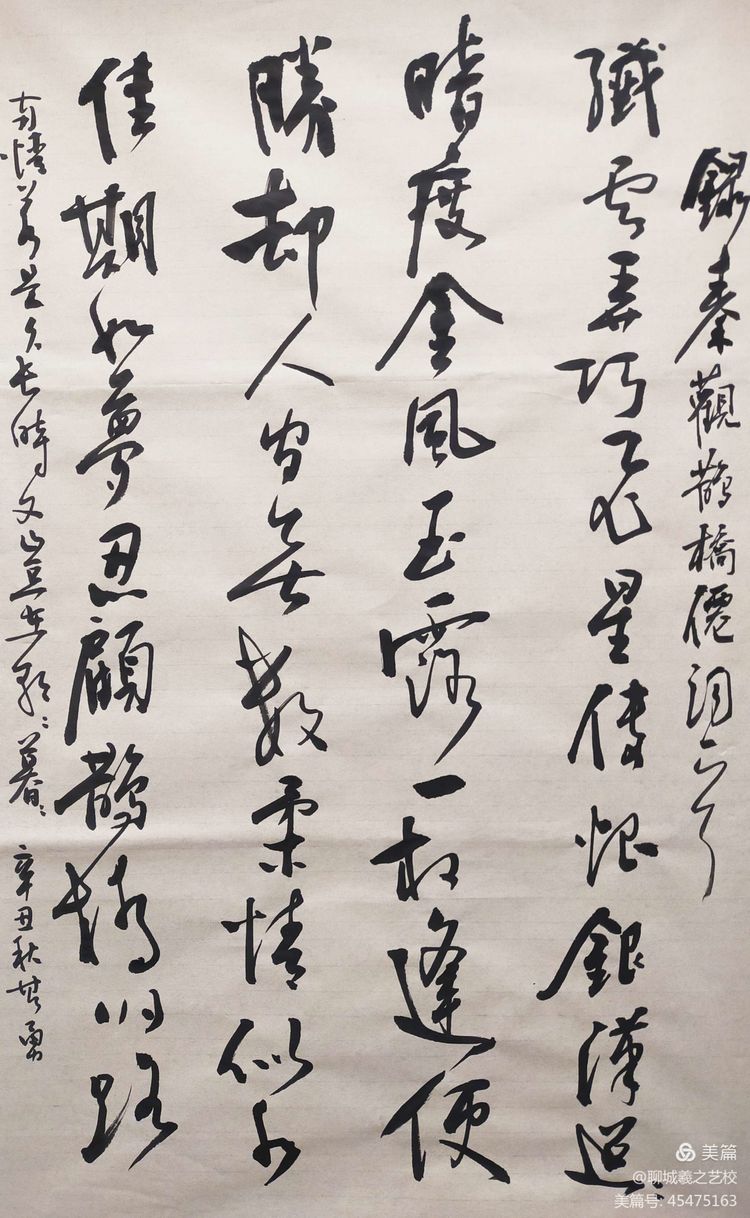 録秦觀鵲橋僊詞
纖雲弄巧飛星傳恨銀漢迢〻
暗度金風玉露一相逢便
勝却人间無數柔情似水
佳期如夢忍顧鵲橋归路
两情若是久長時又豈在朝〻暮〻 辛丑秋 勇
美篇
@聊城羲之艺校
美篇号: 45475163